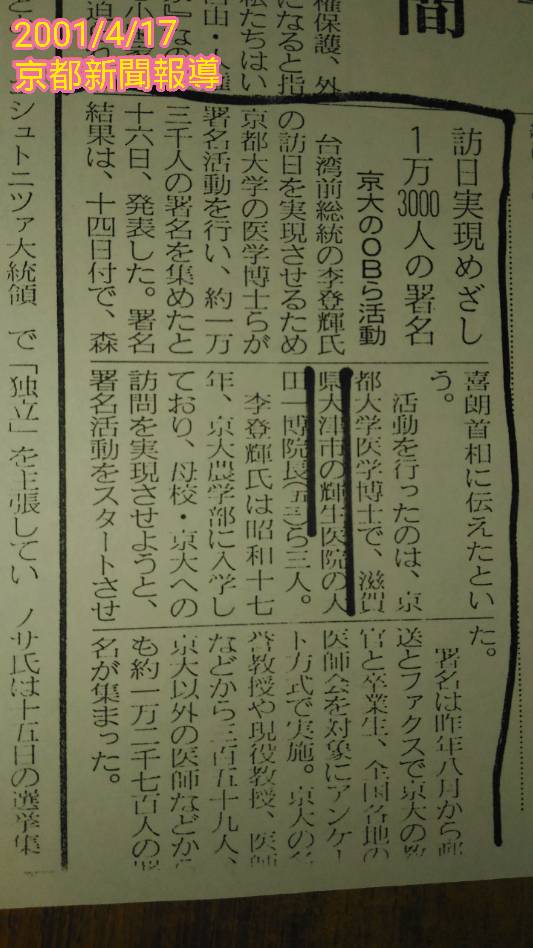 2001/4/17
京都新聞報導
間
権保護、外
になると指
私たちはい
訪日実現めざし
1万3000人の署名
京大のOBら活動
台湾前総統の李登輝氏
の訪日を実現させるため
京都大学の医学博士らが
署名活動を行い、約一万
三千人の署名を集めたと
十六日、発表した。署名
結果は、十四日付で、森
喜朗首相に伝えたとい
う。
活動を行ったのは、京
都大学医学博士で、滋賀
県大津市の輝生医院の久
田一博院長(五三)ら三人。
李登輝氏は昭和十七
年、京大農学部に入学し
ており、母校・京大への
訪問を実現させようと、
署名活動をスタートさせ
た。
署名は昨年八月から郵
送とファクスで京大の教
官と卒業生、全国各地の
医師会を対象にアンケー
ト方式で実施。京大の名
誉教授や現役教授、医師
などから三百五十九人、
京大以外の医師などから
も約一万二千七百人の署
名が集まった。
シュトニツァ大統領
で「独立」を主張してい
ノサ氏は十五日の選挙集